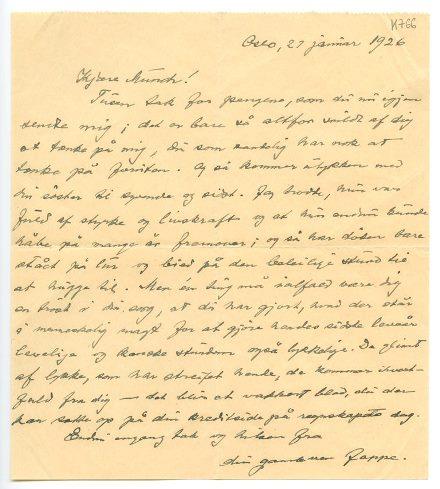 K766
Oslo, 27 januar 1926
Kjære Munch!
Tusen tak for pengene, som du nu igjen
sendte mig; det er bare så altfor snildt af dig
at tenke på mig, du som sandelig har nok at
tenke på forutom. Og så kommer ulykken med
din søster til syvende og sidst. Jeg trodde, hun var
fuld af styrke og livskraft og at hun endnu kunde
håbe på mange år fremover; og så har døden bare
stått på lur og bied på den beleilige stund til
at hugge til. Men en ting må ialfald være dig
en trøst i din sorg, at du har gjort, hvad der står
i menneskelig magt for at gjøre hendes sidste leveår
levelige og kanske stundom også lykkelige. De glimt
af lykke, som har streifet hende, de kommer i hvert
fald fra dig — det blir et vakkert blad, du der
kan sætte op på din kreditside på regnskapets dag.
Endnu engang tak og hilsen fra
din gamle ven Rappe.